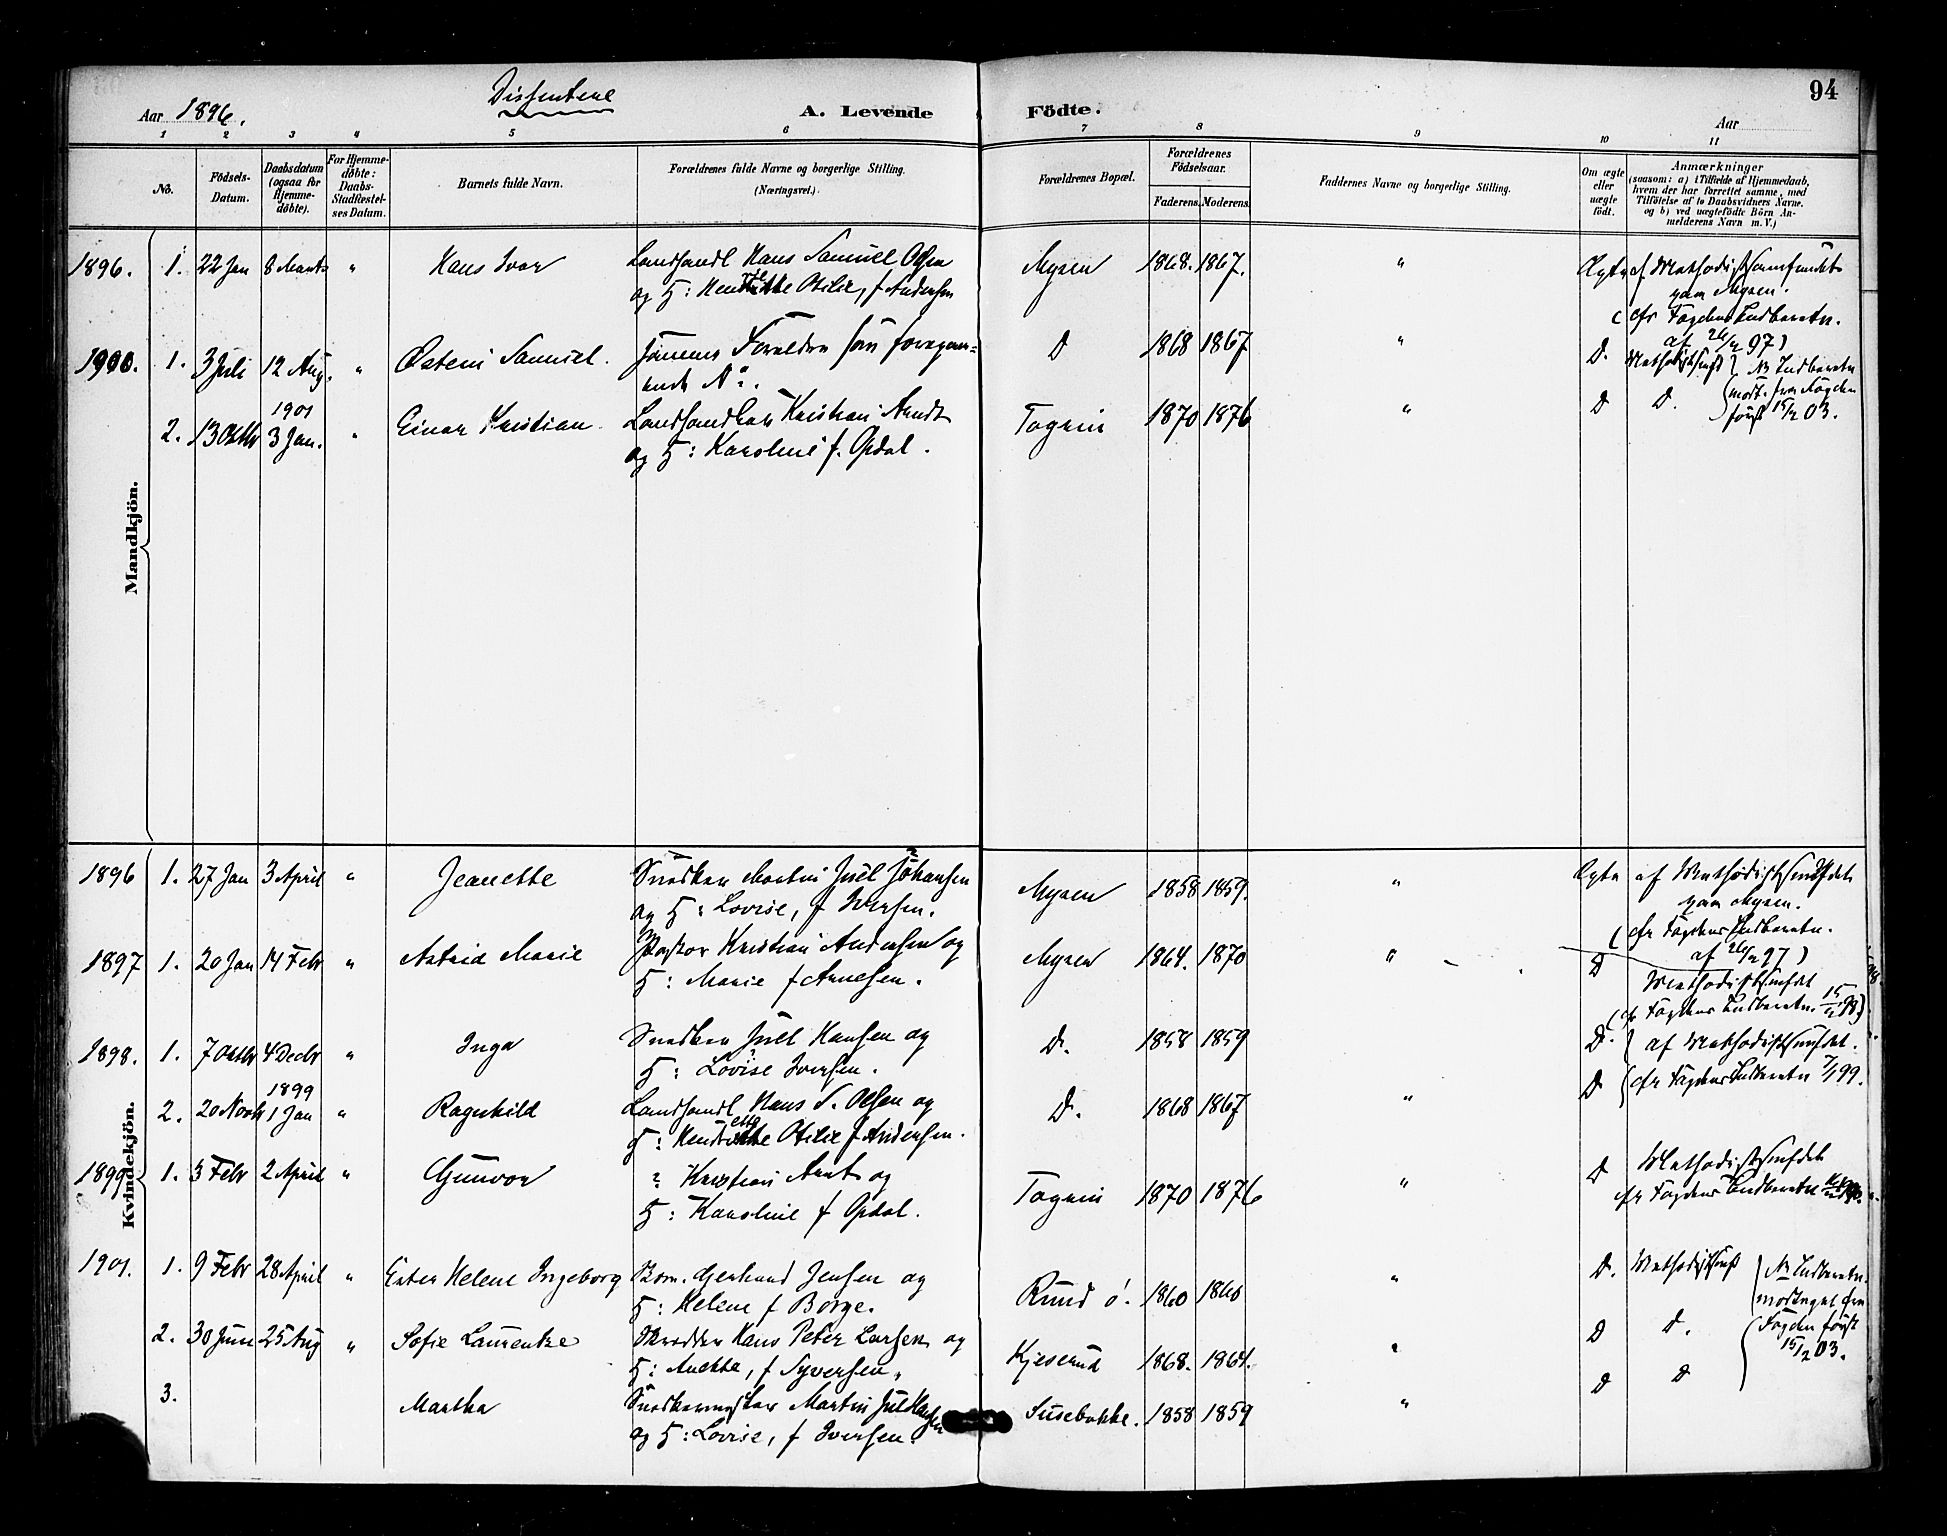 94
Dissentere
Aar 1896.
A. Levende Födte.
Aar
1 2 3 4 5 6 7 8 9 10 11
No.
Födsels-Datum.
Daabsdatum (ogsaa for Hjemme-döbte).
For Hjemme-döbte: Daabs-Stadfæstel-ses Datum.
Barnets fulde Navn.
Forældrenes fulde Navne og borgerlige Stilling.
(Næringsvei.)
Forældrenes Bopæl.
Forældrenes Födselsaar.
Faderens. Moderens.
Faddernes Navne og borgerlige Stilling.
Om ægte eller uægte födt.
Anmærkninger
(saasom: a) i Tilfælde af Hjemmedaab,
hvem der har forrettet samme, med
Tilföielse af to Daabsvidners Navne.
og b) ved uægtefödte Börn An-
melderens Navn m. V.)
Mandkjön.
1896. 1. 22 Jan 8 Marts " Hans Ivar Landhandl Hans Samuel Olsen Mysen 1868. 1867. " Ægte af Methodistsamfundet
og H: Otilie, f Andersen
paa Mysen.
(cfr Fogdens Indberetn.
af 26/2 97)
1900. 1. 3 Juli 12 Aug. " Østein Samuel. Samme Forældre som foregaa-
ende No. D 1868 1867 " D. Methodistsmfd } No Indberetn
modt. fra Fogden
først 15/2 03.
2. 13 Oktbr 1901 3 Jan. " Einar Kristian. Landhandler Kristian Arndt Tosgrin 1870 1876 " D D.
og H: Karoline f. Opdal.
Kvindekjön.
1896 1. 27 Jan 3 April " Jeanette Snedker Martin Juel Johansen Mysen 1858 1859. " Ægte af Methodistsmfdet
og H: Lovise, f Iversen.
paa Mysen.
(cfr Fogdens Indberetn.
af 26/2 97)
1897 1. 20 Jan 14 Febr " Astrid Marie Pastor Kristian Andersen og Mysen 1864. 1870 " D Methodistsmfdet
H: Marie f Arnesen.
(cfr Fogdens Indberetn.
1898. 1. 7 Oktbr 4 Decbr " Inga Snedker Juel Hansen og D. 1858 1859 D. } af Methodistsmfdet.
H: Lovise Iversen.
2. 20 Novb 1899 1 Jan " Ragnhild Landhandl Hans S. Olsen og D. 1868 1867 " D cfr Fogdens Indberetn 7/1 99.
H: Otilie f Andersen.
1899 1. 3 Febr 2 April " Gunvor " Kristian Arnt og 1870 1876 " D Methodistsmfdet
H: Karoline f Opdal.
cfr Fogdens Indberetn
1901. 1. 9 Febr 28 April " Ester Helene Ingeborg Gerhard Jensen og Rud ø. 1860 1860 " D. Methodistsmfd } No Indberetn.
H: Helene f Borge.
modtaget fra
2. 30 Juni 25 Aug " Sofie Laurentze Skrædder Hans Peter Larsen og Kjeserud 1868. 1864. " D D. Fogden først
H: Anette, f Syversen,
15/2 03.
3. Martha Snedkermester Martin Juel Hansen Susebakke. 1858 1859 " D D
og H: Lovise, f Iversen.